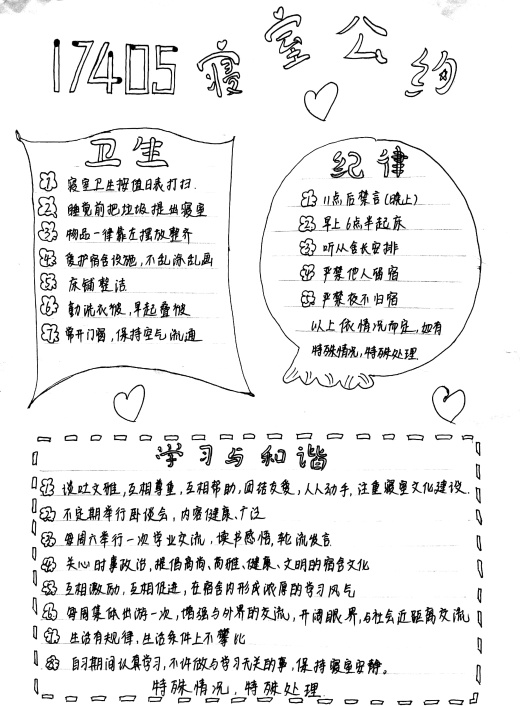 17405寝室公约
卫生
1. 寝室卫生按值日表打扫.
2. 睡觉前把垃圾提出寝室
3. 物品一律靠左摆放整齐
4. 爱护宿舍设施,不乱涂乱画
5. 床铺整洁
6. 勤洗衣被,早起叠被
7. 常开门窗,保持空气流通
纪律
1. 11点后禁言(晚上)
2. 早上6点半起床
3. 听从舍长安排
4. 严禁他人留宿
5. 严禁夜不归宿
以上依情况而定,如有
特殊情况,特殊处理
学习与和谐
1. 谈吐文雅,互相尊重,互相帮助,团结友爱,人人动手,注重寝室文化建设.
2. 不定期举行卧谈会,内容健康、广泛
3. 每周六举行一次学业交流,读书感悟,轮流发言
4. 关心时事政治,提倡高尚、高雅、健康、文明的宿舍文化
5. 互相激励,互相促进,在宿舍内形成浓厚的学习风气
6. 每周集体出游一次,增强与外界的交流,开阔眼界,与社会近距离交流
7. 生活有规律,生活条件上不攀比
8. 自习期间认真学习,不许做与学习无关的事,保持寝室安静。
特殊情况,特殊处理